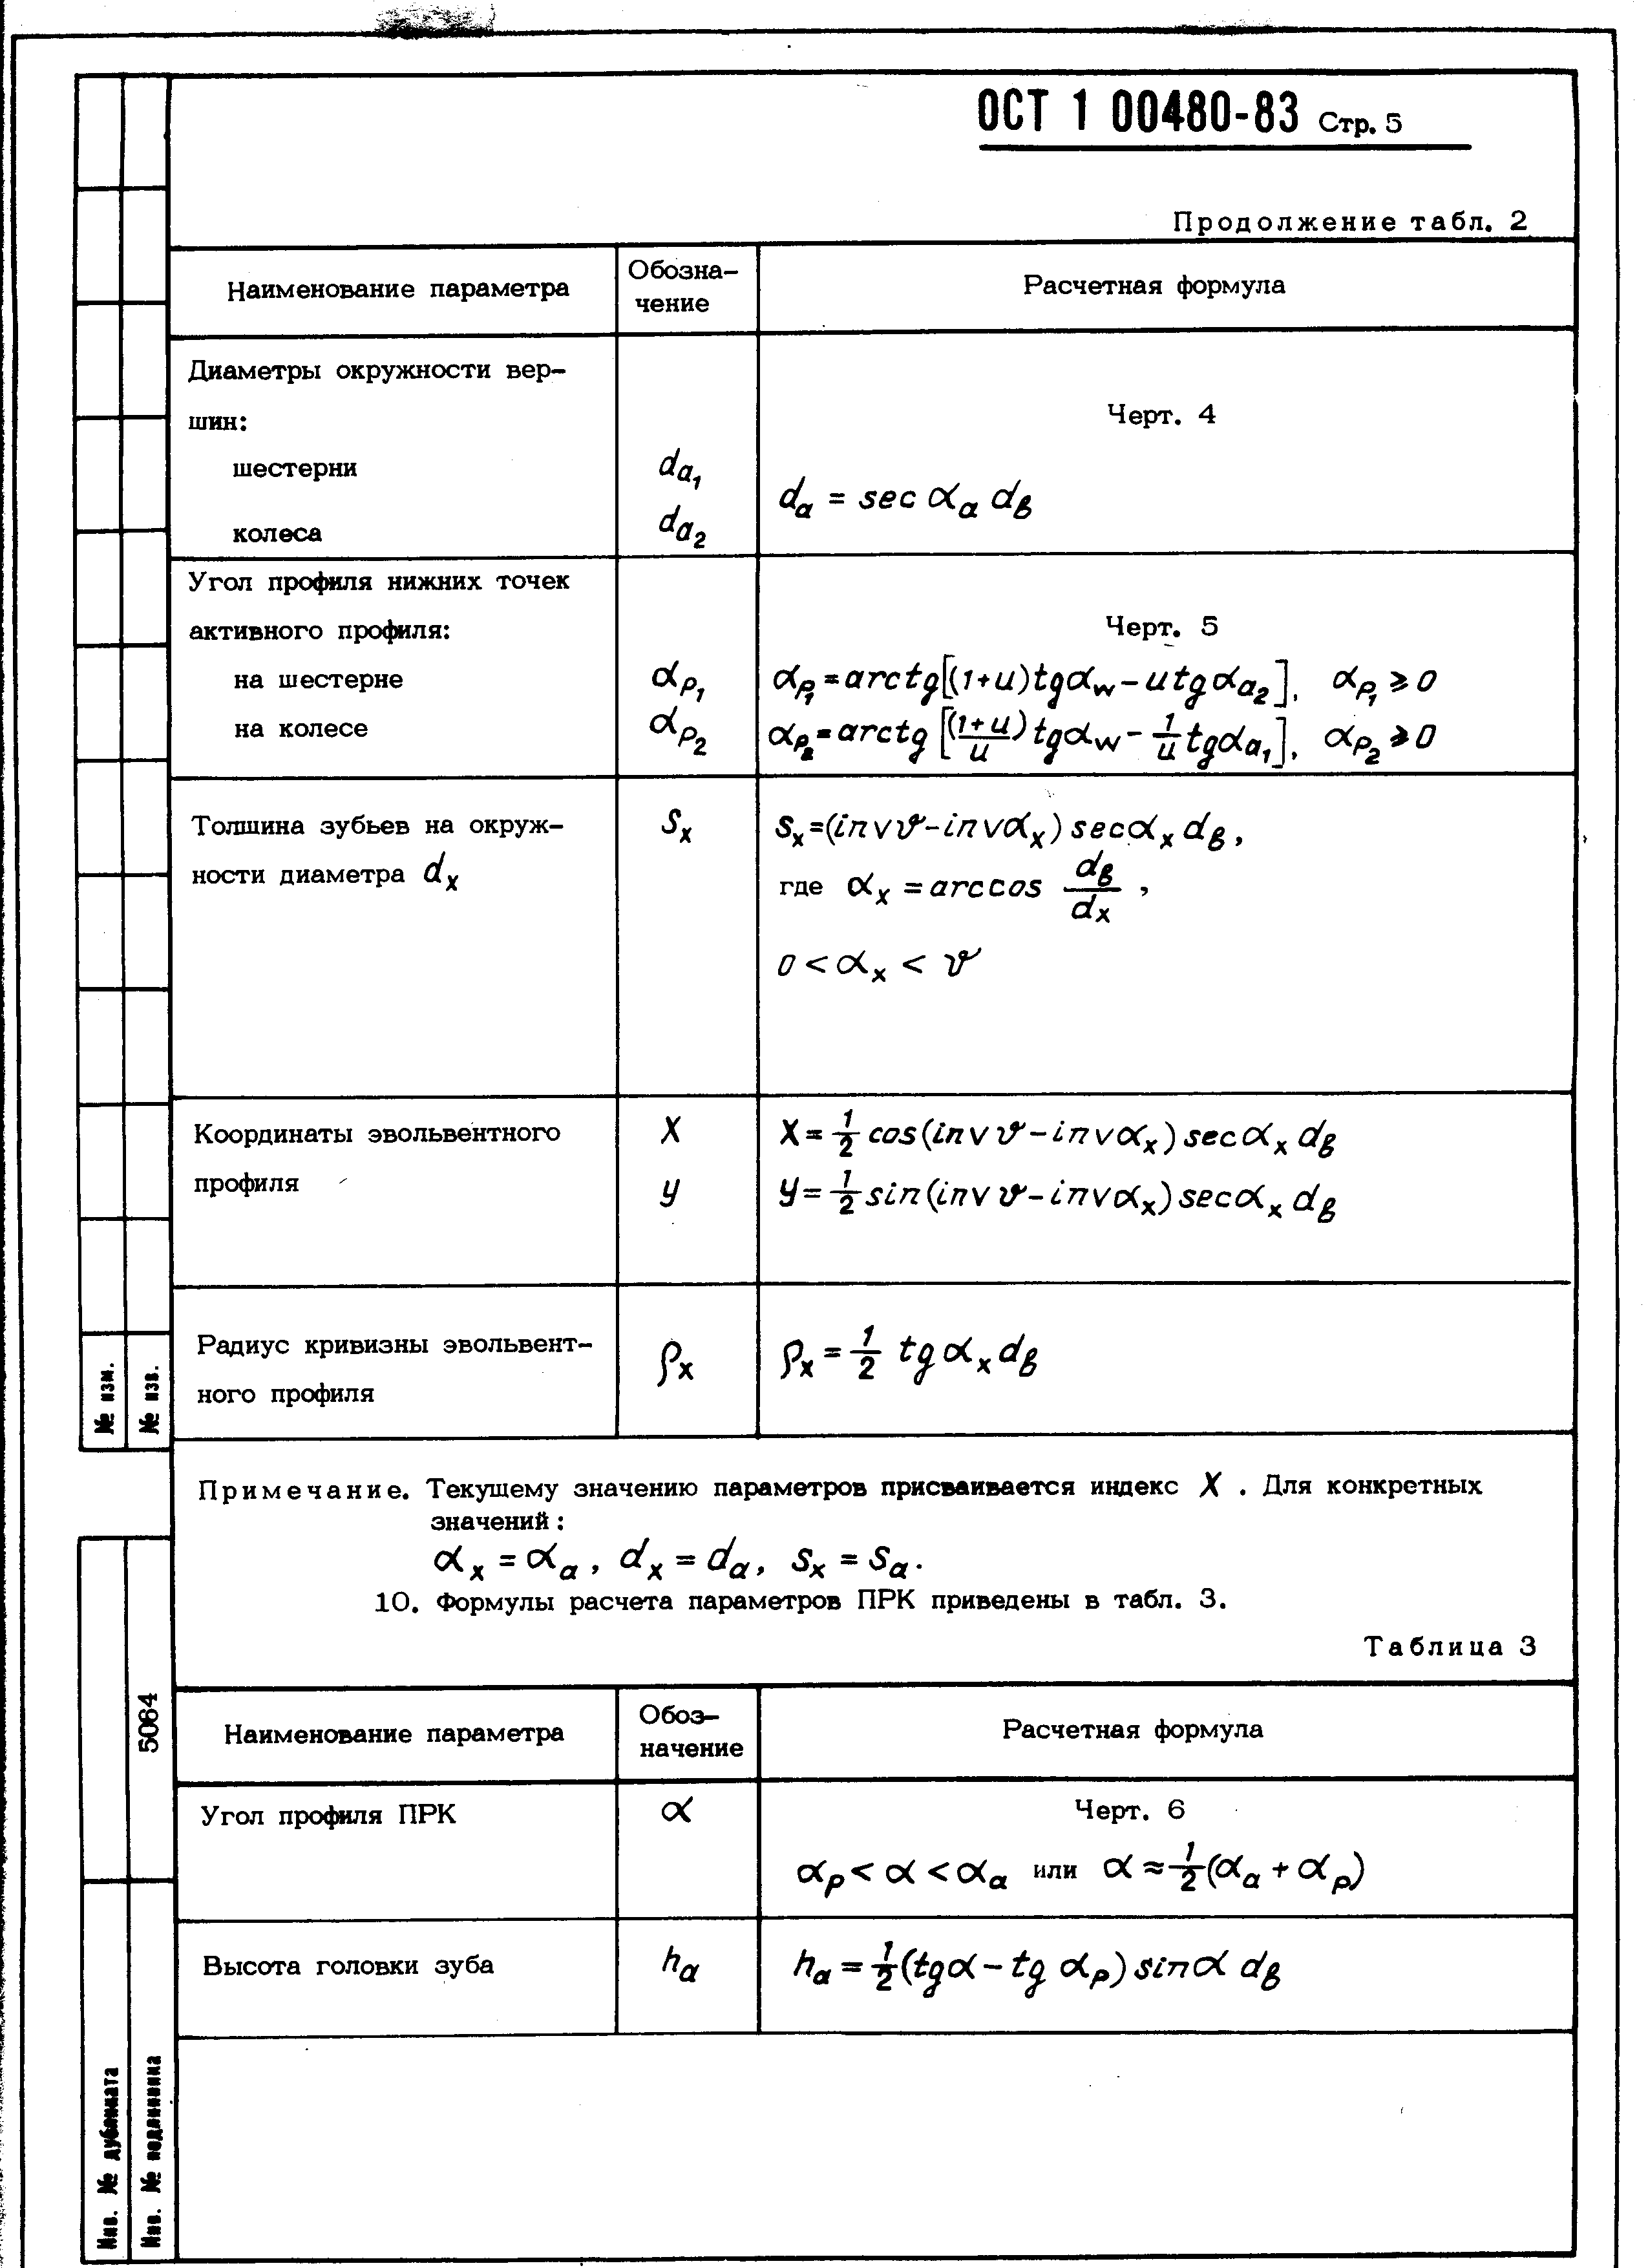 ОСТ 1 00480-83 Стр. 5
Продолжение табл. 2
Наименование параметра
Обозна-
чение
Расчетная формула
Диаметры окружности вер-
шин:
шестерни
колеса
d_{a_1}
d_{a_2}
Черт. 4
d_a = sec α_a d_в
Угол профиля нижних точек
активного профиля:
на шестерне
на колесе
α_{p_1}
α_{p_2}
Черт. 5
α_{p_1} = arctg[(1+u)tgα_w - u tgα_{a_2}], α_{p_1} ⩾ 0
α_{p_2} = arctg[((1+u)/u) tgα_w - 1/u tgα_{a_1}], α_{p_2} ⩾ 0
Толшина зубьев на окруж-
ности диаметра d_x
S_x
S_x = (inv ϑ - inv α_x) sec α_x d_в,
где α_x = arccos d_в/d_x ,
0 < α_x < ϑ
Координаты эвольвентного
профиля
X
y
X = 1/2 cos(inv ϑ - inv α_x) sec α_x d_в
y = 1/2 sin(inv ϑ - inv α_x) sec α_x d_в
Радиус кривизны эвольвент-
ного профиля
ρ_x
ρ_x = 1/2 tg α_x d_в
Примечание. Текущему значению параметров присваивается индекс X . Для конкретных
значений:
α_x = α_a, d_x = d_a, S_x = S_a.
10. Формулы расчета параметров ПРК приведены в табл. 3.
Таблица 3
Наименование параметра
Обоз-
начение
Расчетная формула
Угол профиля ПРК
α
Черт. 6
α_p < α < α_a или α ≈ 1/2(α_a + α_p)
Высота головки зуба
h_a
h_a = 1/2(tgα - tg α_p) sin α d_в
№ изм.
№ изв.
5064
Инв. № дубликата
Инв. № подлинника